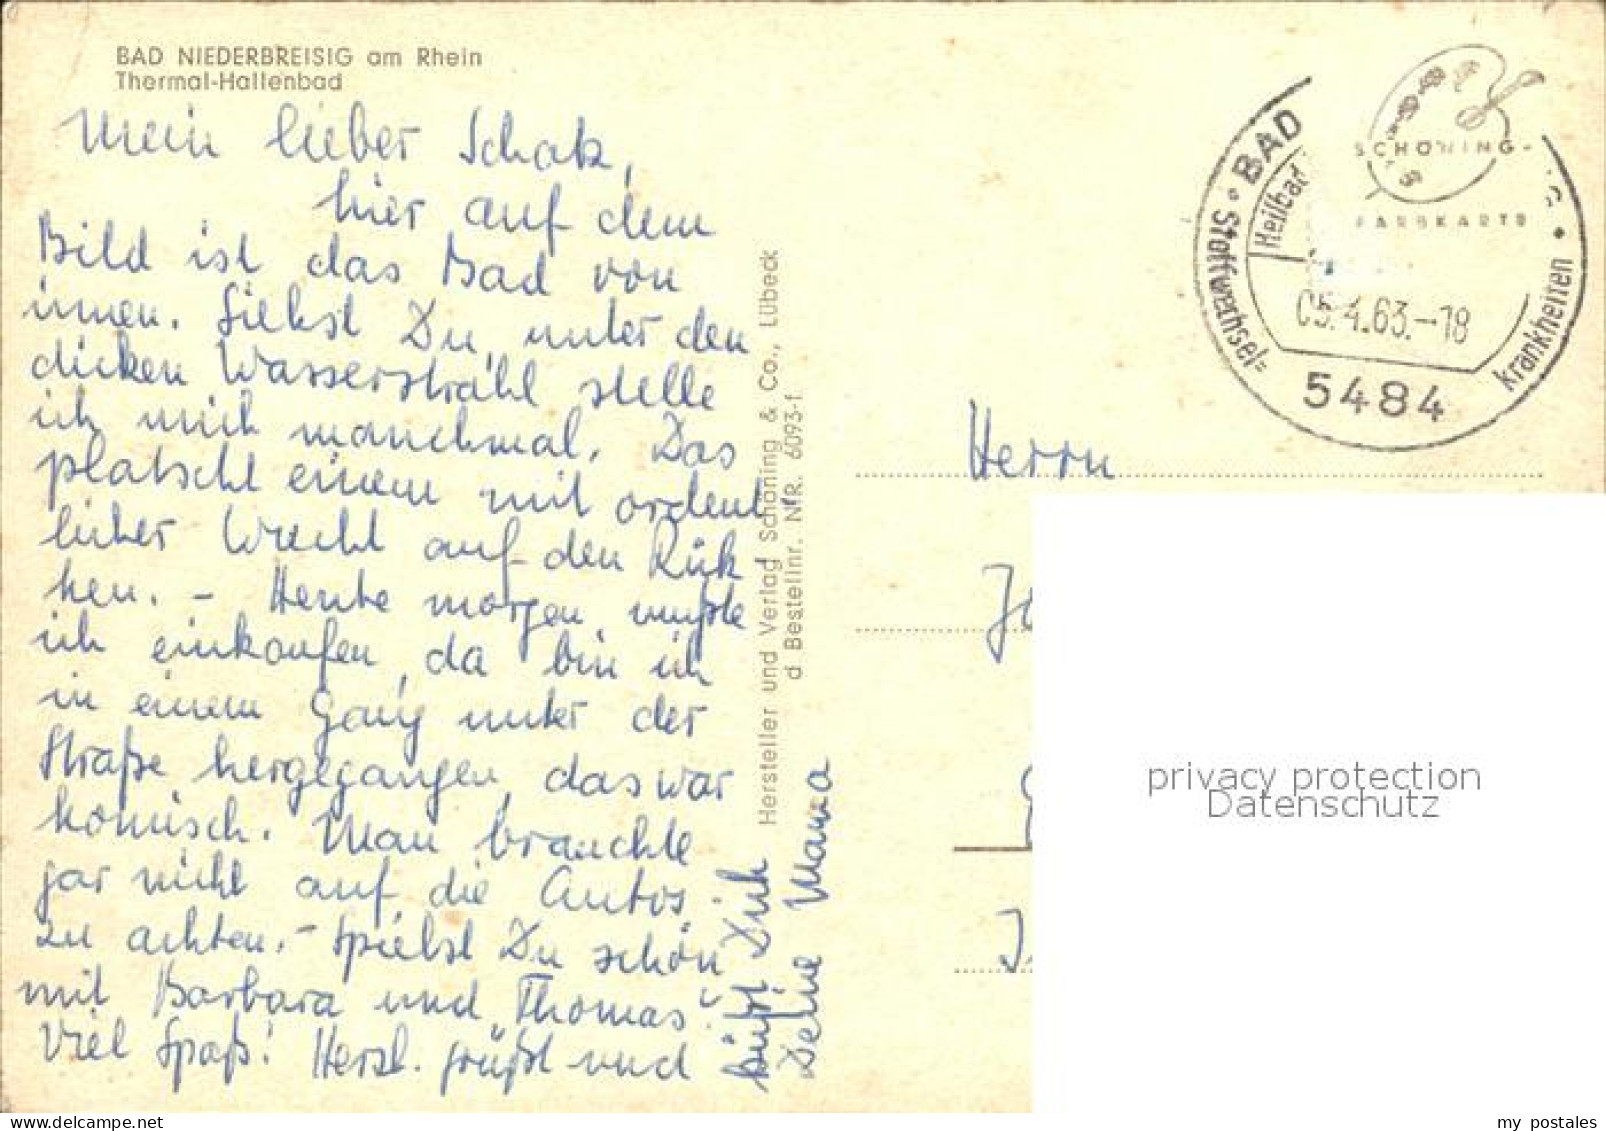 BAD NIEDERBREISIG am Rhein
Thermal-Hallenbad
Mein lieber Schatz,
hier auf dem
Bild ist das Bad von
innen. Siehst Du, unter den
dicken Wasserstrahl stelle
ich mich manchmal. Das
platscht einem mit ordent-
licher Wucht auf den Rük-
ken. - Heute morgen mußte
ich einkaufen, da bin ich
in einem Gang unter der
Straße hergegangen, das war
komisch. Man brauchte
gar nicht auf die Autos
zu achten. - Spielst Du schön
mit Barbara und "Thomas"?
Viel Spaß! Herzl. grüßt und
küßt Dich
Deine Mama
Hersteller und Verlag Schöning & Co., Lübeck
d Bestellnr. NR. 6093-f.
SCHÖNING-
FARBKARTE
BAD
Heilbad
Stoffwechsel-
krankheiten
05.4.63.-18
5484
Herrn
privacy protection
Datenschutz
my postales